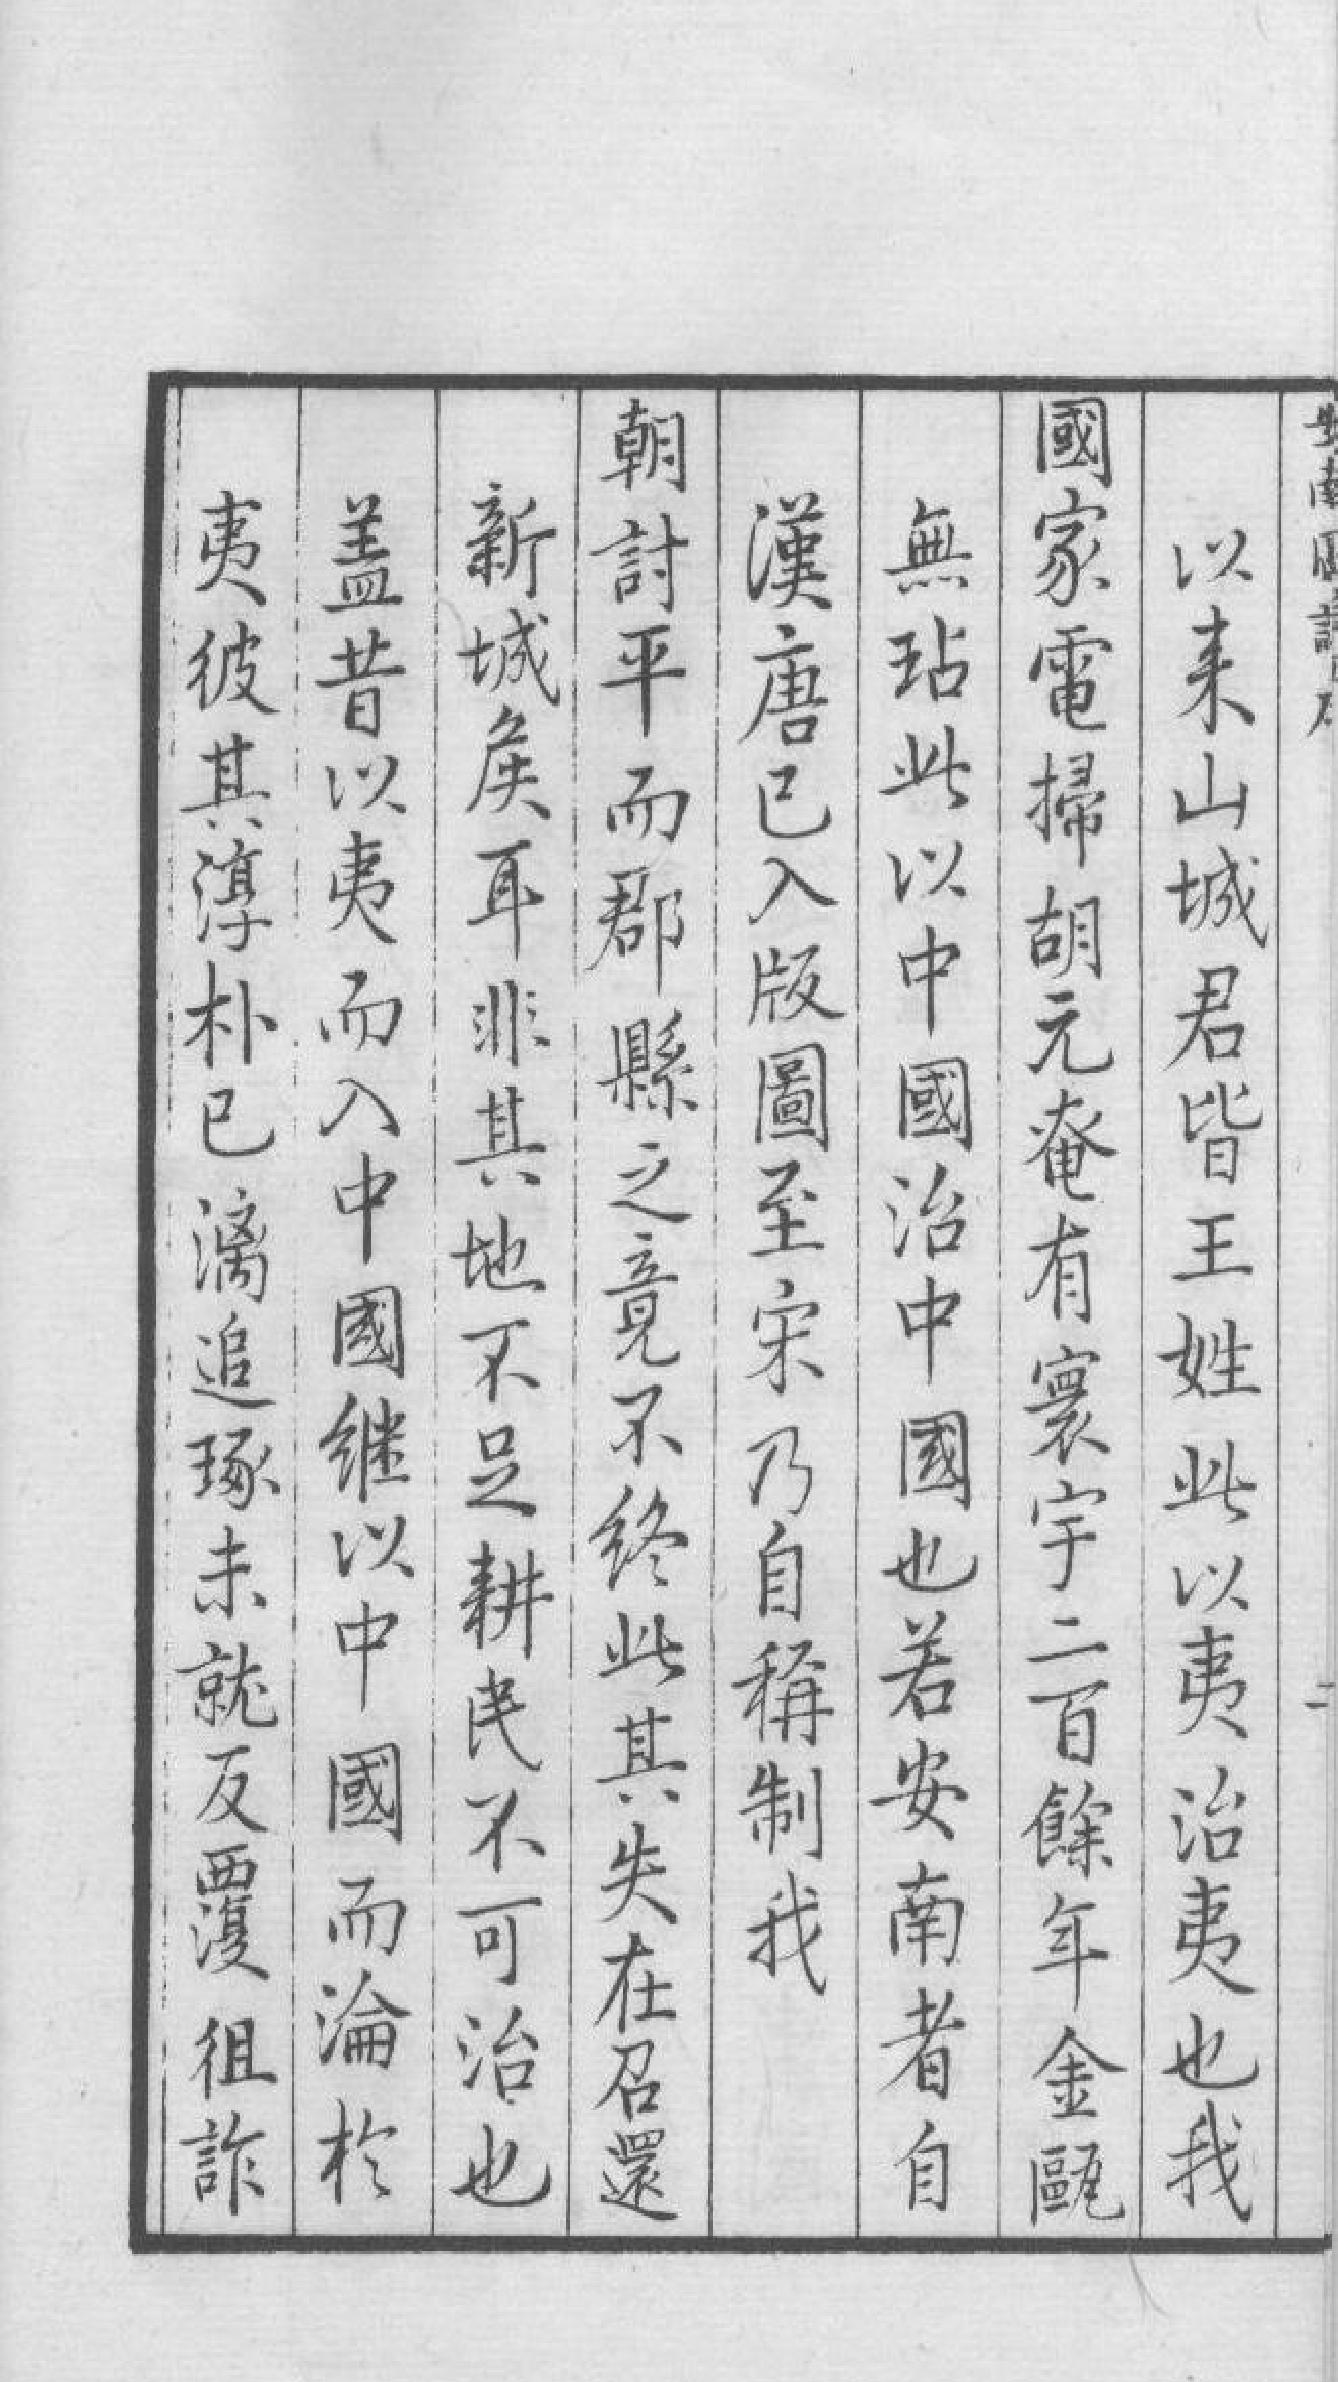 以来山城君皆王姓此以夷治夷也我
國家電掃胡元奄有寰宇二百餘年金甌
無玷此以中國治中國也若安南者自
漢唐已入版圖至宋乃自稱制我
朝討平而郡縣之竟不終此其失在召還
新城矦耳非其地不足耕民不可治也
盖昔以夷而入中國継以中國而淪於
夷彼其淳朴已漓追琢未就反覆徂詐
二